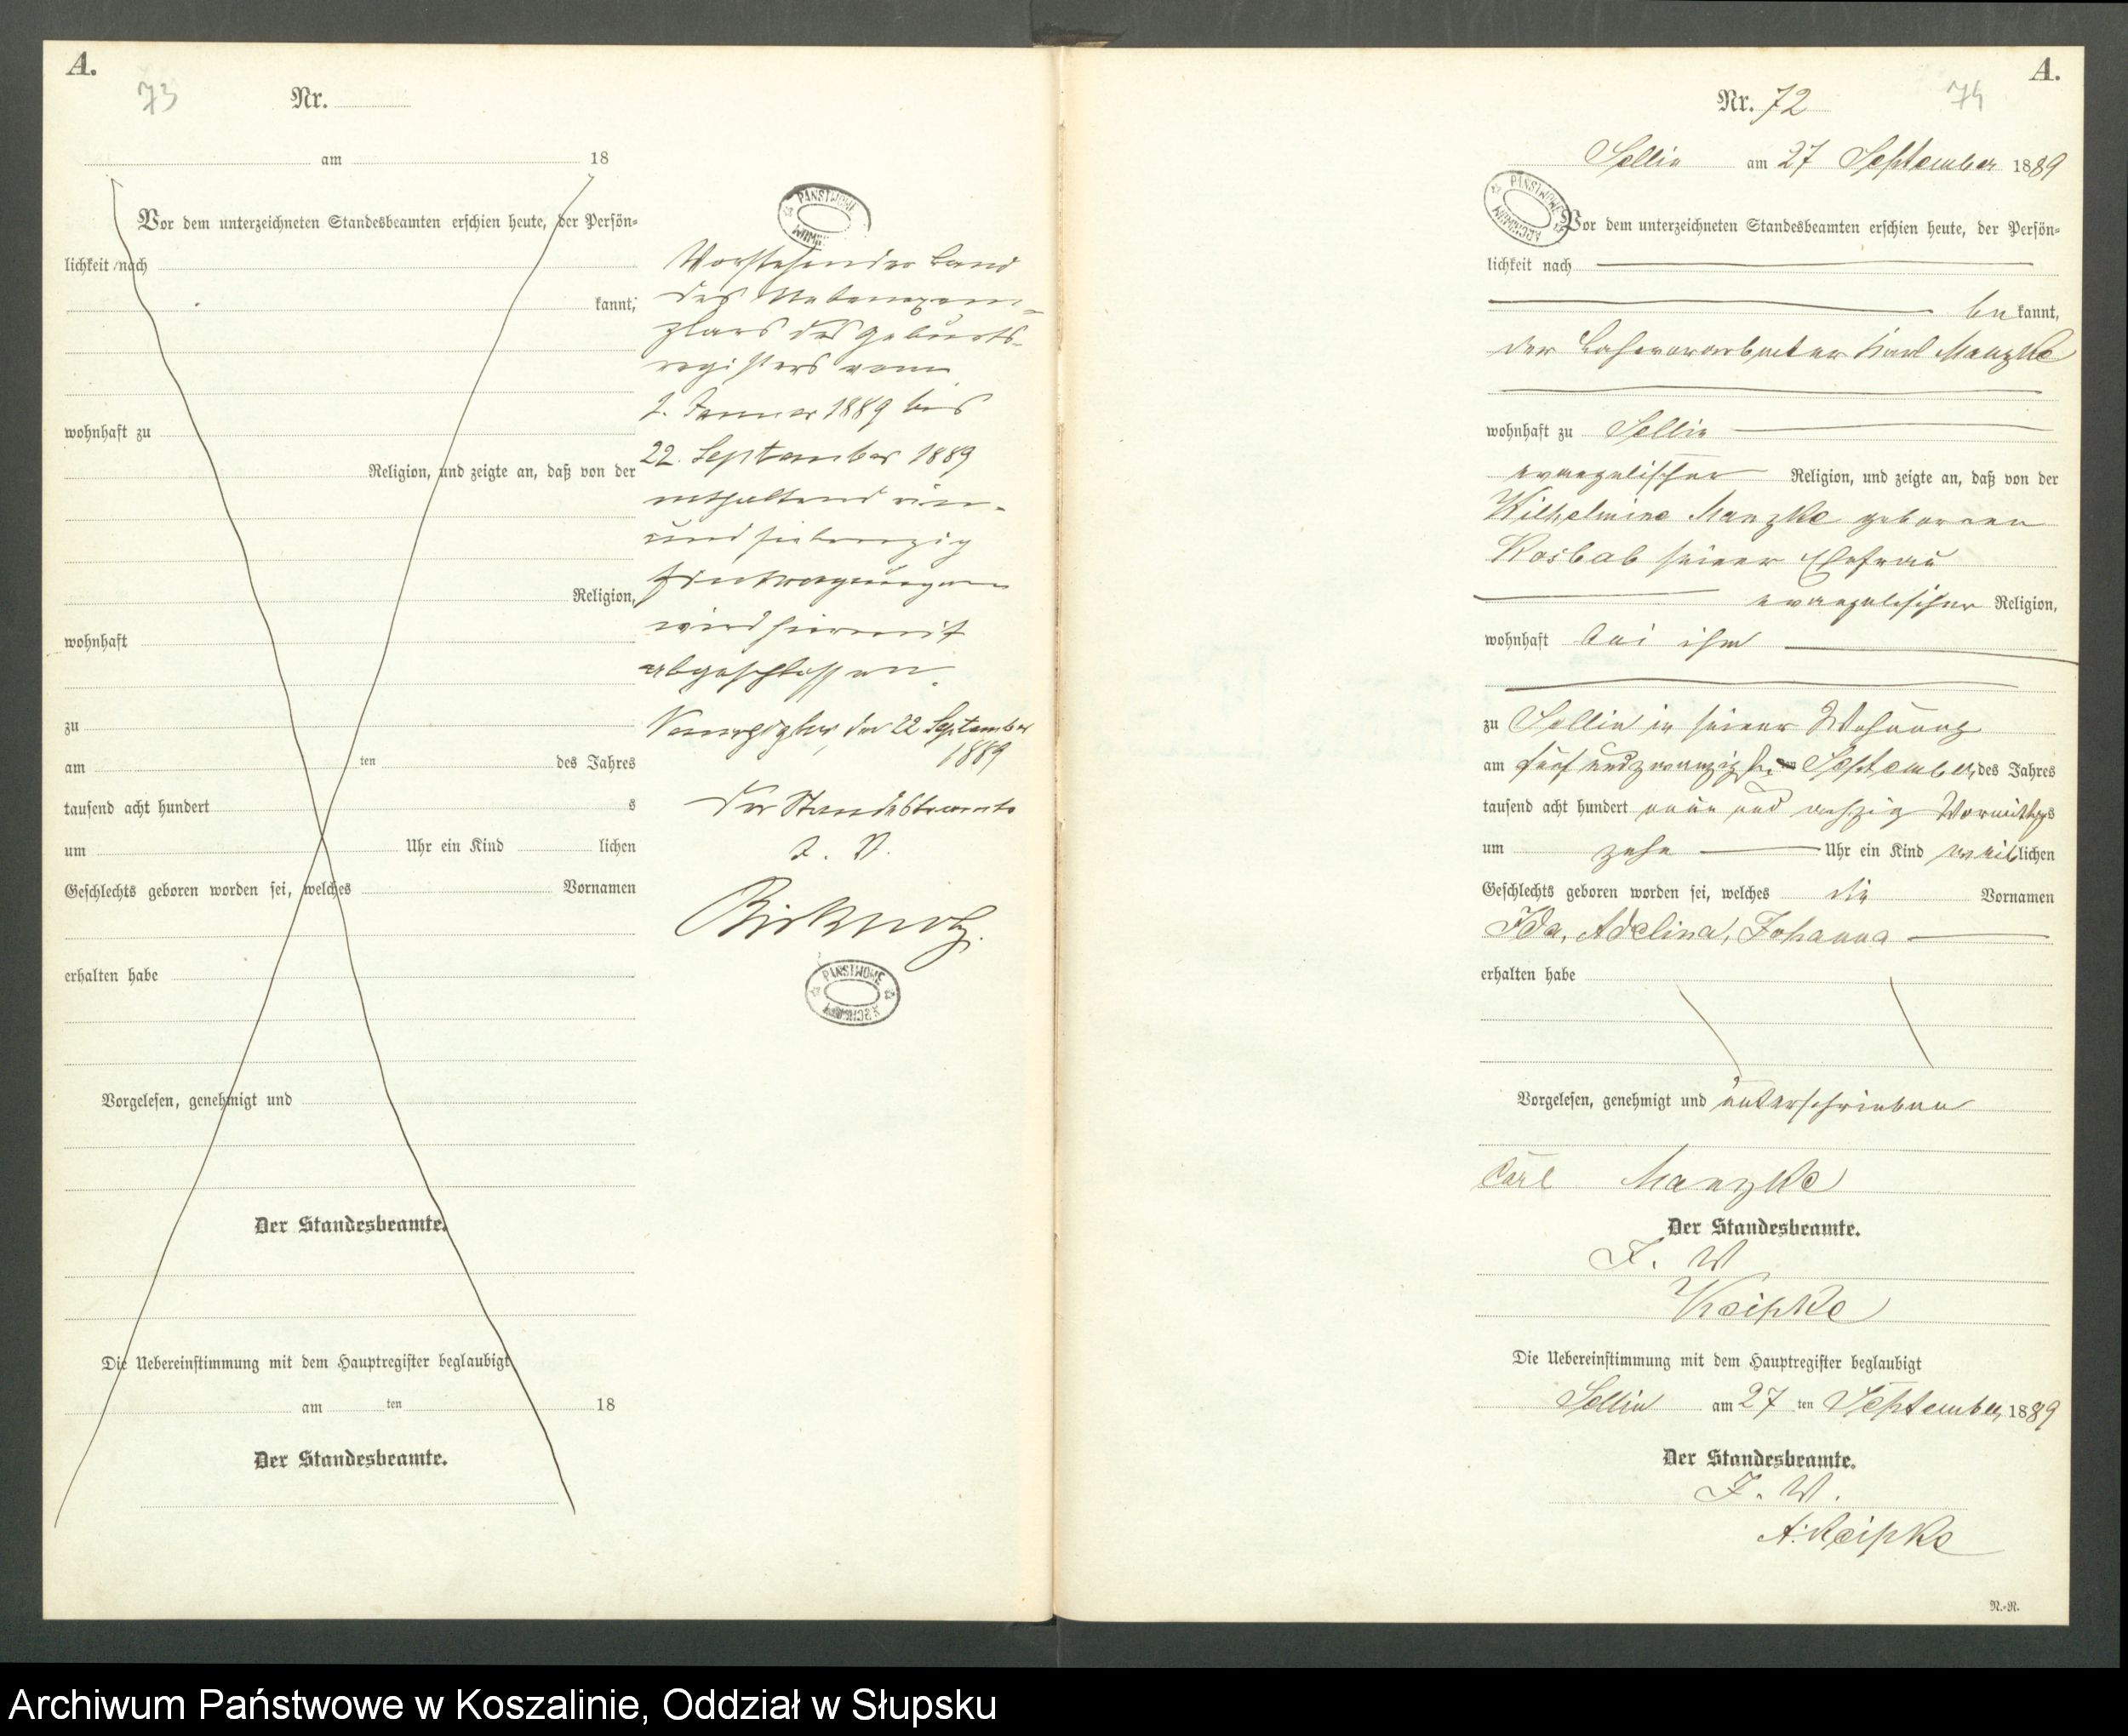 A.
73
Nr.
am 18
Vor dem unterzeichneten Standesbeamten erschien heute, der Persön-
lichkeit nach
kannt,
wohnhaft zu
Religion, und zeigte an, daß von der
Religion,
wohnhaft
zu
am ten des Jahres
tausend acht hundert s
um Uhr ein Kind lichen
Geschlechts geboren worden sei, welches Vornamen
erhalten habe
Vorgelesen, genehmigt und
Der Standesbeamte.
Die Uebereinstimmung mit dem Hauptregister beglaubigt
am ten 18
Der Standesbeamte.
PAŃSTWOWE ARCHIWUM
Vorstehender Band
des Nebenexem-
plars des Geburts-
registers vom
1. Januar 1889 bis
22. September 1889
enthaltend ein-
und siebenzig
Eintragungen
wird hiermit
abgeschlossen.
den 22 September
1889
Der Standesbeamte
I. V.
PAŃSTWOWE ARCHIWUM
A.
Nr. 72
74
Sellin am 27 September 1889
PAŃSTWOWE ARCHIWUM
Vor dem unterzeichneten Standesbeamten erschien heute, der Persön-
lichkeit nach
be kannt,
der Karl Manzke
wohnhaft zu Sellin
evangelischer Religion, und zeigte an, daß von der
Wilhelmine Manzke geborenen
Kosbab seiner Ehefrau
evangelischer Religion,
wohnhaft bei ihm
zu Sellin in seiner Wohnung
am fünf und zwanzigsten September des Jahres
tausend acht hundert neun und achtzig Vormittags
um zehn Uhr ein Kind weiblichen
Geschlechts geboren worden sei, welches die Vornamen
Ida, Adelina, Johanna
erhalten habe
Vorgelesen, genehmigt und unterschrieben
Carl Manzke
Der Standesbeamte.
I. V.
Die Uebereinstimmung mit dem Hauptregister beglaubigt
Sellin am 27 ten September 1889
Der Standesbeamte.
I. V.
N.-N.
Archiwum Państwowe w Koszalinie, Oddział w Słupsku